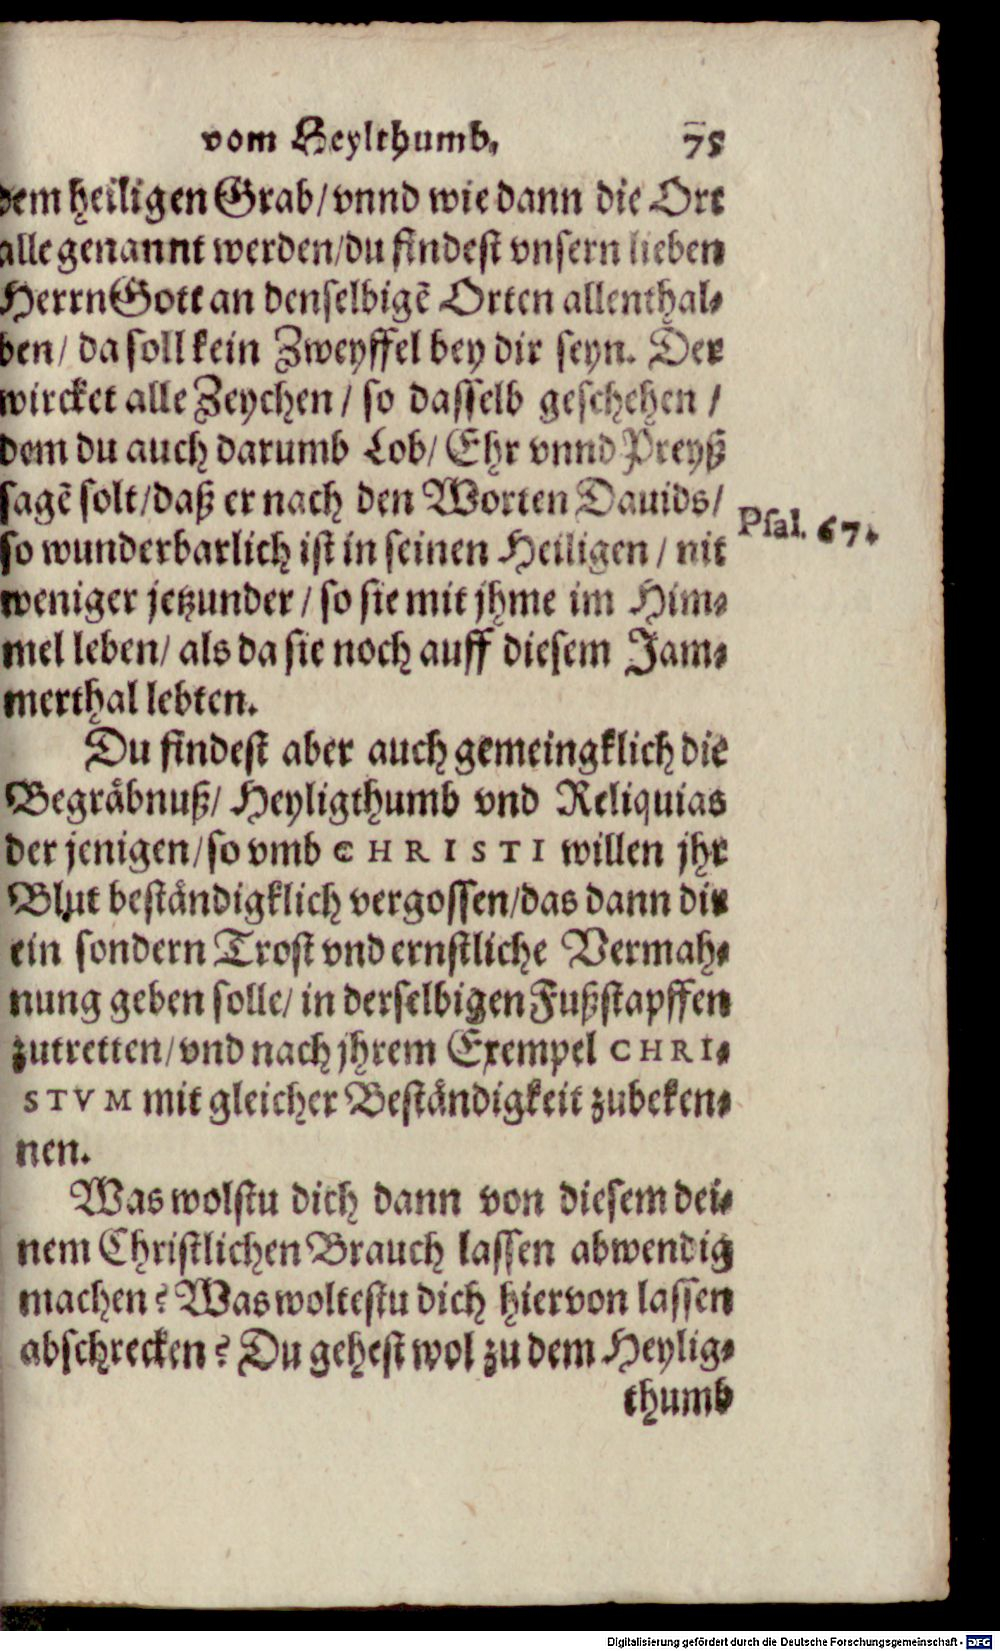 vom Heylthumb. 75
dem heiligen Grab/ vnnd wie dann die Ort
alle genannt werden/ du findest vnsern lieben
Herrn Gott an denselbigẽ Orten allenthal-
ben/ da soll kein Zweyffel bey dir seyn. Der
wircket alle Zeychen / so dasselb geschehen /
dem du auch darumb Lob/ Ehr vnnd Preyß
sagẽ solt/ daß er nach den Worten Dauids/
Psal. 67.
so wunderbarlich ist in seinen Heiligen / nit
weniger jetzunder / so sie mit jhme im Him-
mel leben/ als da sie noch auff diesem Jam-
merthal lebten.
Du findest aber auch gemeingklich die
Begräbnuß/ Heyligthumb vnd Reliquias
der jenigen/ so vmb CHRISTI willen jhr
Blut beständigklich vergossen/ das dann dir
ein sondern Trost vnd ernstliche Vermah-
nung geben solle/ in derselbigen Fußstapffen
zutretten/ vnd nach jhrem Exempel CHRI-
STVM mit gleicher Beständigkeit zubeken-
nen.
Was wolstu dich dann von diesem dei-
nem Christlichen Brauch lassen abwendig
machen? Was woltestu dich hiervon lassen
abschrecken? Du gehest wol zu dem Heylig-
thumb
Digitalisierung gefördert durch die Deutsche Forschungsgemeinschaft - DFG